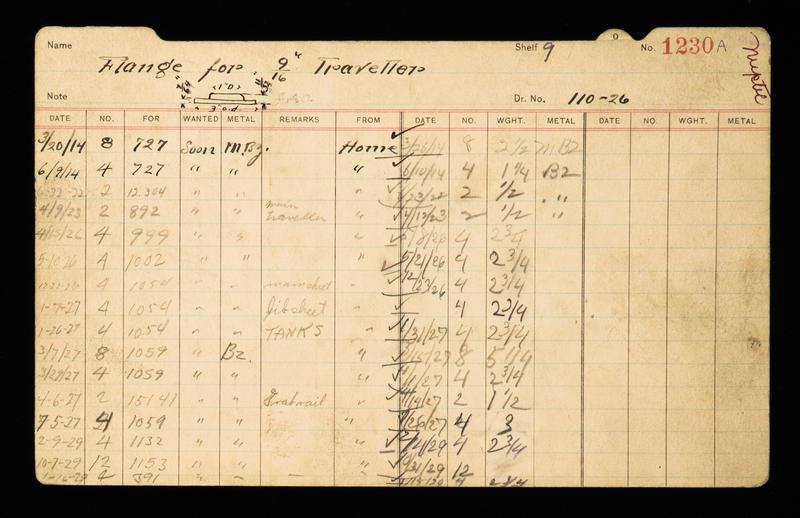 Name Shelf 9 No. 1230 A
Flange for 9/16" Traveller
Note Dr. No. 110-26
DATE NO. FOR WANTED METAL REMARKS FROM DATE NO. WGHT. METAL DATE NO. WGHT. METAL
3/20/14 8 727 Soon M.Bz. Home 3/26/14 8 2 1/2 M Bz
6/9/14 4 727 " " " 6/10/14 4 1 1/4 Bz
2 12304 " " " /23/22 2 1/2 "
4/9/23 2 892 " " main traveller " 4/12/23 2 1/2 "
4/15/26 4 999 " " " /8/26 4 2 3/4
5-10-26 4 1002 " " " 5/21/26 4 2 3/4
4 1054 " " mainsheet " 12/23/26 4 2 3/4
1-7-27 4 1054 " " Jibsheet " 4 2 3/4
1-26-27 4 1054 " " TANKS " 1/31/27 4 2 3/4
3/7/27 8 1059 " Bz. " 3/15/27 8 5 1/4
3/29/27 4 1059 " " " /1/27 4 2 3/4
4-6-27 2 15141 " " Grabrail " 4/14/27 2 1 1/2
7-5-27 4 1059 " " " /26/27 4 3
2-9-29 4 1132 " " " 2/ /29 4 2 3/4
10-7-29 12 1153 " " " /31/29 12
4 391 " " — "